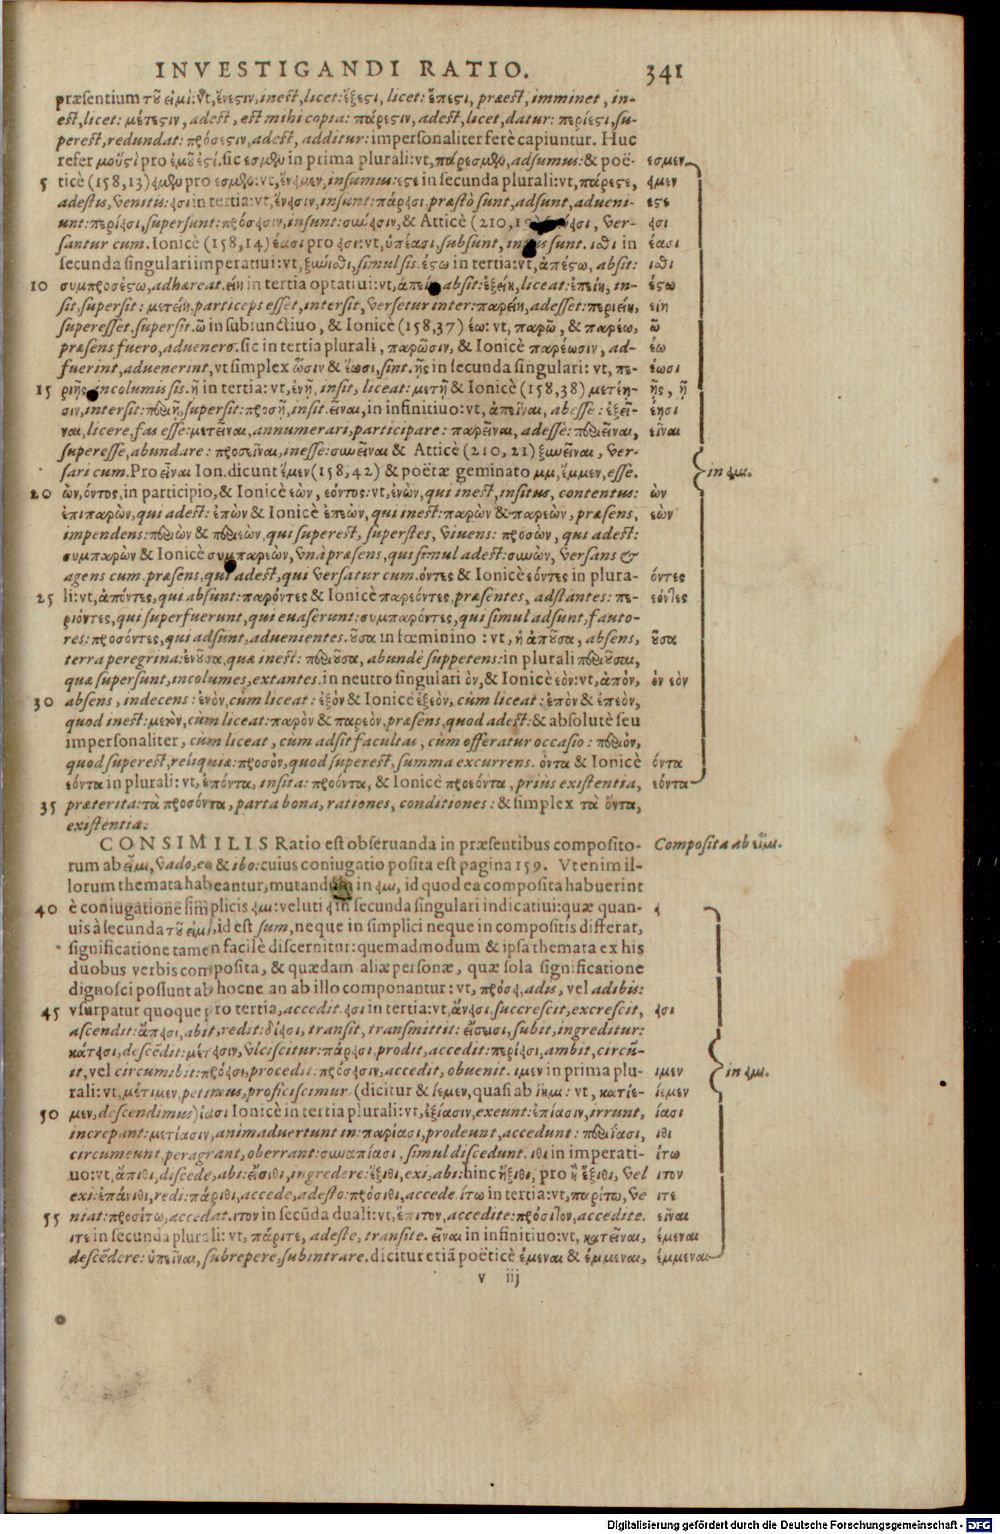 INVESTIGANDI RATIO. 341
præsentium τοῦ εἰμί: vt, ἔνεστιν, inest, licet: ἔξεστι, licet: ἔπεστι, præest, imminet, in-
est, licet: μέτεστιν, adest, est mihi copia: πάρεστιν, adest, licet, datur: περίεστι, su-
perest, redundat: πρόσεστιν, adest, additur: impersonaliter ferè capiuntur. Huc
refer μοὔστι pro ἐμοί ἐστί. sic εσμεν in prima plurali: vt, πάρεσμεν, adsumus: & poë- εσμεν
5 ticè (158,13) εἰμεν pro εσμεν: vt, ἔνειμεν, insumus: εστε in secunda plurali: vt, πάρεστε, ειμεν
adestis, venitis: εισι in tertia: vt, ἔνεισιν, insunt: πάρεισι, præstò sunt, adsunt, adueni- εστε
unt: περίεισι, supersunt: πρόσεισιν, insunt: σύνεισιν, & Atticè (210, ver- εισι
santur cum. Ionicè (158,14) έασι pro εισι: vt, ὑπέασι, subsunt, sunt. ισθι in έασι
secunda singulari imperatiui: vt, ξύνισθι, simul sis. έστω in tertia: vt, ἀπέστω, absit: ισθι
10 συμπροσέστω, adhæreat. είη in tertia optatiui: vt, ἀπείη absit: ἐξείη, liceat: ἐπείη, in- έστω
sit, supersit: μετείη, particeps esset, intersit, versetur inter: παρείη, adesset: περιείη, είη
superesset, supersit. ῶ in subiunctiuo, & Ionicè (158,37) έω: vt, παρῶ, & παρέω, ῶ
præsens fuero, aduenero. sic in tertia plurali, παρῶσιν, & Ionicè παρέωσιν, ad- έω
fuerint, aduenerint, vt simplex ὦσιν & ἔωσι, sint. ῇς in secunda singulari: vt, πε- έωσι
15 ριῇς incolumis sis. ῇ in tertia: vt, ἐνῇ, insit, liceat: μετῇ & Ionicè (158,38) μετέη- ῇς, ῇ
σιν, intersit: περιῇ, supersit: προσῇ, insit. εῖναι, in infinitiuo: vt, ἀπεῖναι, abesse: ἐξεῖ- έησι
ναι, licere, fas esse: μετεῖναι, annumerari, participare: παρεῖναι, adesse: περιεῖναι, εῖναι
superesse, abundare: προσεῖναι, inesse: συνεῖναι & Atticè (210,21) ξυνεῖναι, ver-
sari cum. Pro εἶναι Ion. dicunt ἔμεν (158,42) & poëtæ geminato μμ, ἔμμεν, esse. in ειμι.
20 ὼν, όντος, in participio, & Ionicè εὼν, εόντος: vt, ἐνὼν, qui inest, insitus, contentus: ὼν
ἐπιπαρὼν, qui adest: ἐπὼν & Ionicè ἐπεὼν, qui inest: παρὼν & παρεὼν, præsens, εὼν
impendens: περιὼν & περιεὼν, qui superest, superstes, viuens: προσὼν, qui adest:
συμπαρὼν & Ionicè συμπαρεὼν, vnà præsens, qui simul adest: συνὼν, versans &
agens cum. præsens, qui adest, qui versatur cum. όντες & Ionicè εόντες in plura- όντες
25 li: vt, ἀπόντες, qui absunt: παρόντες & Ionicè παρεόντες, præsentes, adstantes: πε- εόντες
ριόντες, qui superfuerunt, qui euaserunt: συμπαρόντες, qui simul adsunt, fauto-
res: προσόντες, qui adsunt, aduenientes. οῦσα in fœminino: vt, ἡ ἀποῦσα, absens, οῦσα
terra peregrina: ἐνοῦσα, quæ inest: περιοῦσα, abundè suppetens: in plurali περιοῦσαι,
quæ supersunt, incolumes, extantes. in neutro singulari όν, & Ionicè εόν: vt, ἀπόν, όν εόν
30 absens, indecens: ἐνόν, cùm liceat: ἐξόν & Ionicè ἐξεόν, cùm liceat: ἐπόν & ἐπεόν,
quod inest: μετόν, cùm liceat: παρόν & παρεόν, præsens, quod adest: & absolutè seu
impersonaliter, cùm liceat, cùm adsit facultas, cùm offeratur occasio: περιόν,
quod superest, reliquiæ: προσόν, quod superest, summa excurrens. όντα & Ionicè όντα
εόντα in plurali: vt, ἐπόντα, insita: προόντα, & Ionicè προεόντα, prius existentia, εόντα
35 præterita: τὰ προσόντα, parta bona, rationes, conditiones: & simplex τὰ ὄντα,
existentia.
CONSIMILIS Ratio est obseruanda in præsentibus composito- Composita ab εἶμι.
rum ab εἶμι, vado, eo & ibo: cuius coniugatio posita est pagina 159. Vt enim il-
lorum themata habeantur, mutandum in ειμι, id quod ea composita habuerint
40 è coniugatione simplicis ειμι: veluti ει in secunda singulari indicatiui: quæ quan- ει
uis à secunda τοῦ εἰμί, id est sum, neque in simplici neque in compositis differat,
significatione tamen facilè discernitur: quemadmodum & ipsa themata ex his
duobus verbis composita, & quædam aliæ personæ, quæ sola significatione
dignosci possunt ab hocne an ab illo componantur: vt, πρόσει, adis, vel adibis:
45 vsurpatur quoque pro tertia, accedit. εισι in tertia: vt, ἄνεισι, succrescit, excrescit, εισι
ascendit: ἄπεισι, abit, redit: δίεισι, transit, transmittit: εἴσεισι, subit, ingreditur:
κάτεισι, descēdit: μέτεισιν, vlciscitur: πάρεισι, prodit, accedit: περίεισι, ambit, circū-
it, vel circumibit: πρόεισι, procedit: πρόσεισιν, accedit, obuenit. ιμεν in prima plu- ιμεν in ειμι.
rali: vt, μέτιμεν, petimus, proficiscimur (dicitur & ίεμεν, quasi ab ίημι: vt, κατίε- ίεμεν
50 μεν, descendimus) ίασι Ionicè in tertia plurali: vt, ἐξίασιν, exeunt: ἐπίασιν, irrunt, ίασι
increpant: μετίασιν, animaduertunt in: παρίασι, prodeunt, accedunt: περιίασι, ιθι
circumeunt, peragrant, oberrant: συναπίασι, simul discedunt. ιθι in imperati- ίτω
uo: vt, ἄπιθι, discede, abi: εἴσιθι, ingredere: ἔξιθι, exi, abi: hinc ἤξιθι, pro ἢ ἔξιθι, vel ιτον
exi: ἐπάνιθι, redi: πάριθι, accede, adesto: πρόσιθι, accede. ίτω in tertia: vt, παρίτω, ve ιτε
55 niat: προσίτω, accedat. ιτον in secūda duali: vt, ἔπιτον, accedite: πρόσιτον, accedite. εῖναι
ιτε in secunda plurali: vt, πάριτε, adeste, transite. εῖναι in infinitiuo: vt, κατεῖναι, έμεναι
descēdere: ὑπεῖναι, subrepere, subintrare. dicitur etiā poëticè ἔμεναι & ἔμμεναι, έμμεναι
v iij
Digitalisierung gefördert durch die Deutsche Forschungsgemeinschaft - DFG